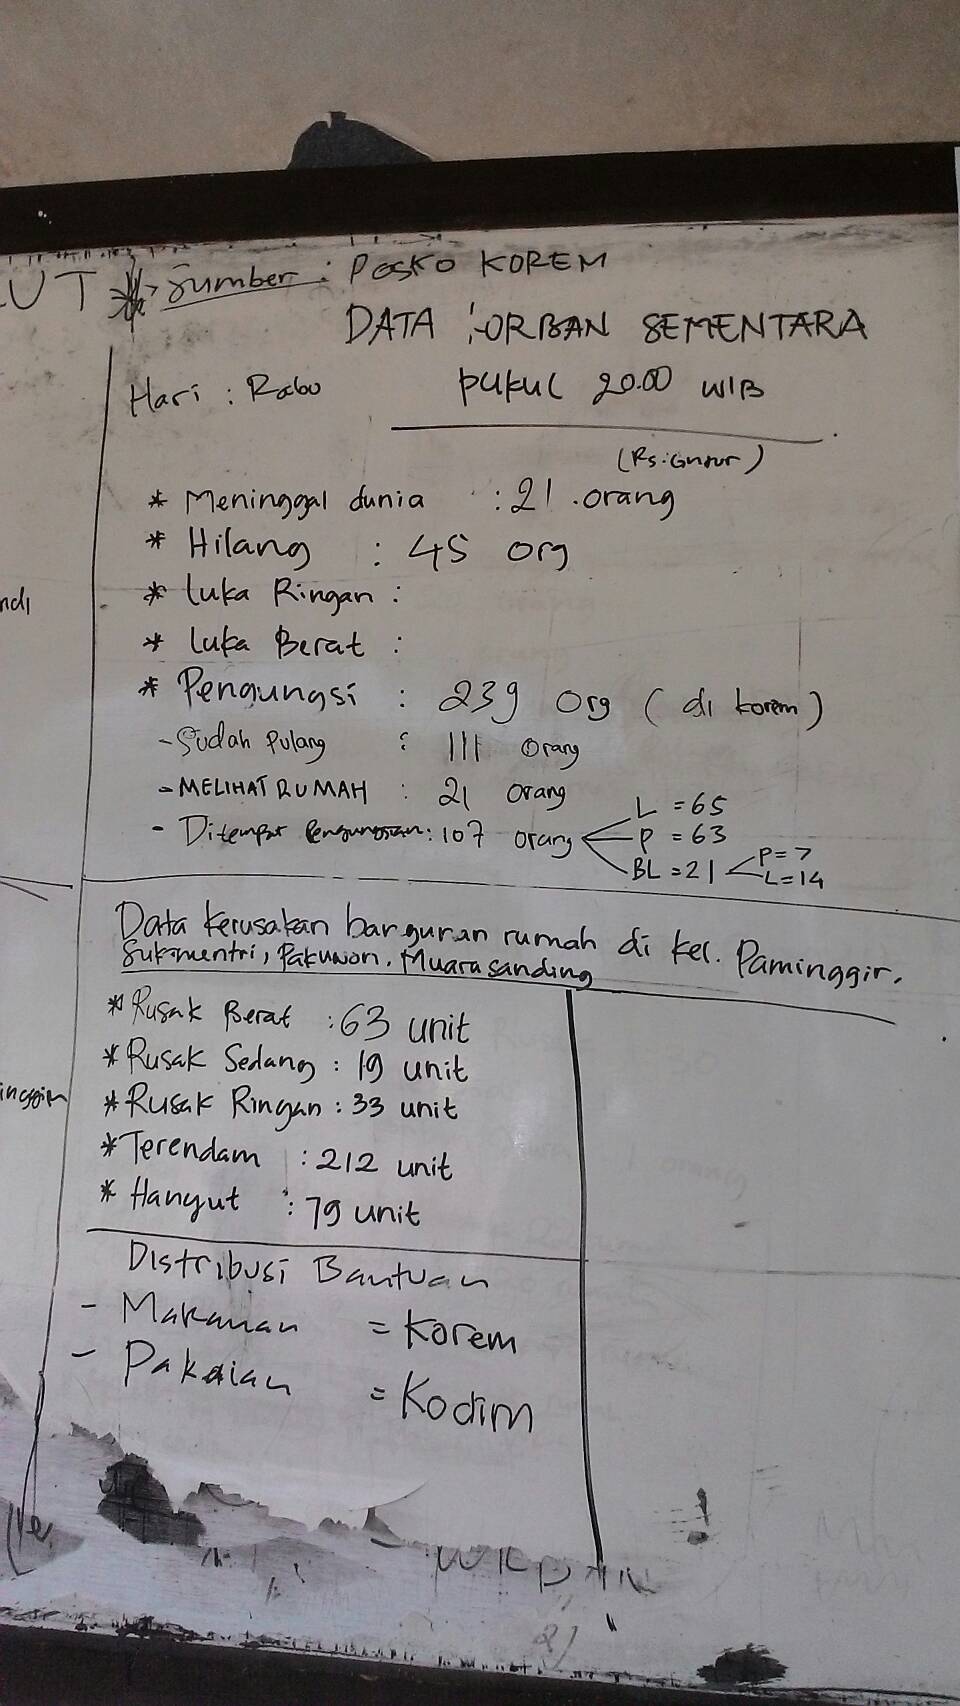 LUT
Sumber : POSKO KOREM
DATA KORBAN SEMENTARA
Hari : Rabu pukul 20.00 WIB
(Rs. Guntur)
* Meninggal dunia : 21 orang
* Hilang : 45 org
* Luka Ringan :
* Luka Berat :
* Pengungsi : 239 org (di korem)
- Sudah Pulang : 111 orang
- MELIHAT RUMAH : 21 orang
- Ditempat Pengungsian : 107 orang
L = 65
P = 63
BL = 21
P = 7
L = 14
Data kerusakan bangunan rumah di kel. Paminggir,
Sukamentri, Pakuwon, Muarasanding
* Rusak Berat : 63 unit
* Rusak Sedang : 19 unit
* Rusak Ringan : 33 unit
* Terendam : 212 unit
* Hanyut : 79 unit
Distribusi Bantuan
- Makanan = Korem
- Pakaian = Kodim